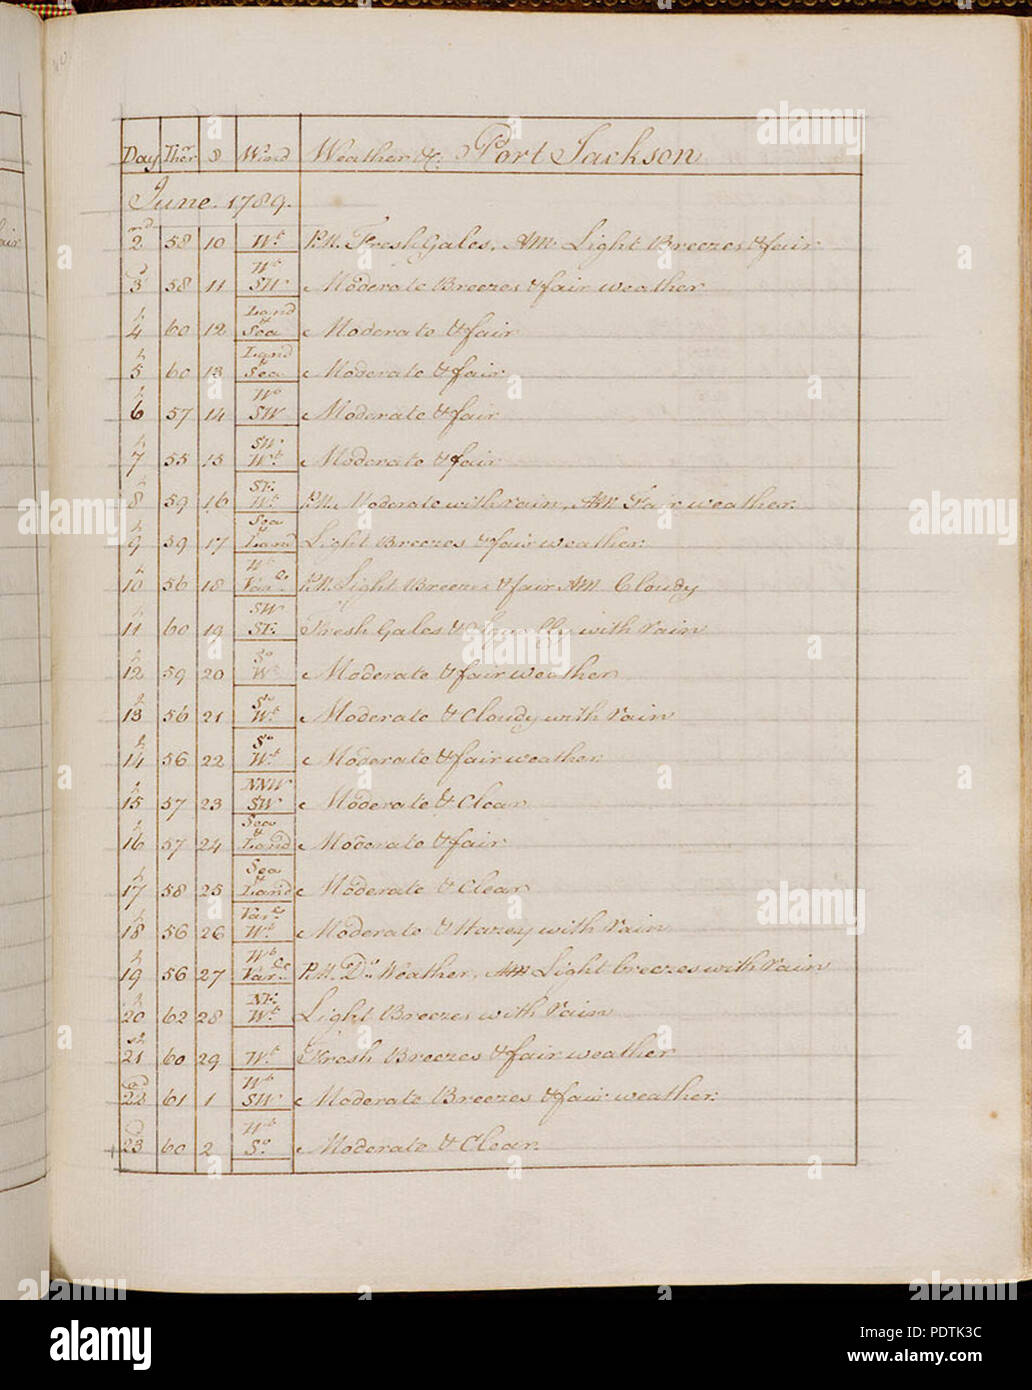 Day Ther 8 Wind Weather &c. Port Jackson
June. 1789.
2nd 58 10 Wt. P.M. Fresh Gales, AM. Light Breezes & fair
3d 58 11 Wt SW Moderate Breezes & fair weather
4h 60 12 Land & Sea Moderate & fair
5h 60 13 Land & Sea Moderate & fair
6h 57 14 Wt SW Moderate & fair
7h 55 15 SW Wt. Moderate & fair
8h 59 16 SE. Wt. P.M. Moderate with rain, AM. Fair weather.
9h 59 17 Sea & Land Light Breezes & fair weather.
10h 56 18 Wt Varle. P.M. Light Breezes & fair AM. Cloudy
11h 60 19 SW SE. Fresh Gales & Squally with rain
12h 59 20 So W Moderate & fair weather
13h 56 21 So Wt. Moderate & Cloudy with rain
14h 56 22 So Wt. Moderate & fair weather
15h 57 23 NNW SW Moderate & Clear
16h 57 24 Sea & Land Moderate & fair
17h 58 25 Sea & Land Moderate & Clear
18h 56 26 Varle Wt. Moderate & Hazey with rain
19h 56 27 Wt Varle. P.M. Do Weather, AM Light breezes with rain
20h 62 28 NE. Wt. Light Breezes with rain
21st 60 29 Wt. Fresh Breezes & fair weather
22d 61 1 Wt SW Moderate Breezes & fair weather.
23d 60 2 Wt So. Moderate & Clear.
alamy
Image ID: PDTK3C
www.alamy.com